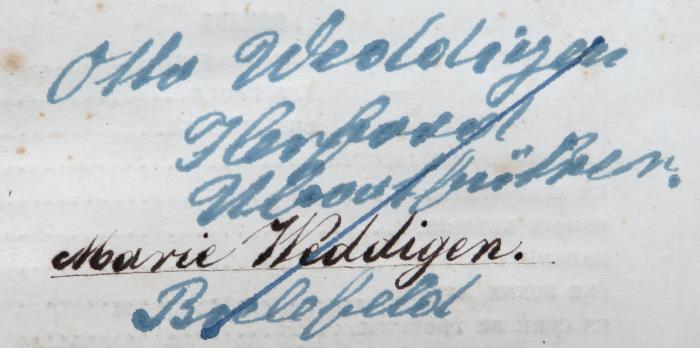 Otto Weddigen
Herford
Marie Weddigen.
Bielefeld